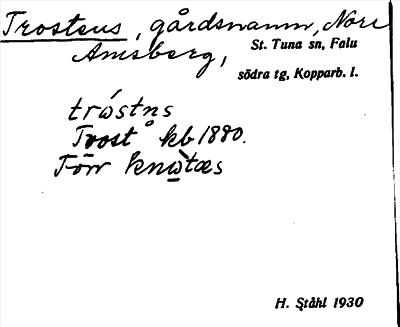 Trostens, gårdsnamn, Norr
Amsberg,
St. Tuna sn, Falu
södra tg, Kopparb. l.
trǻstn̥s
Trost kb 1880.
Förr knὼtæs
H. Ståhl 1930